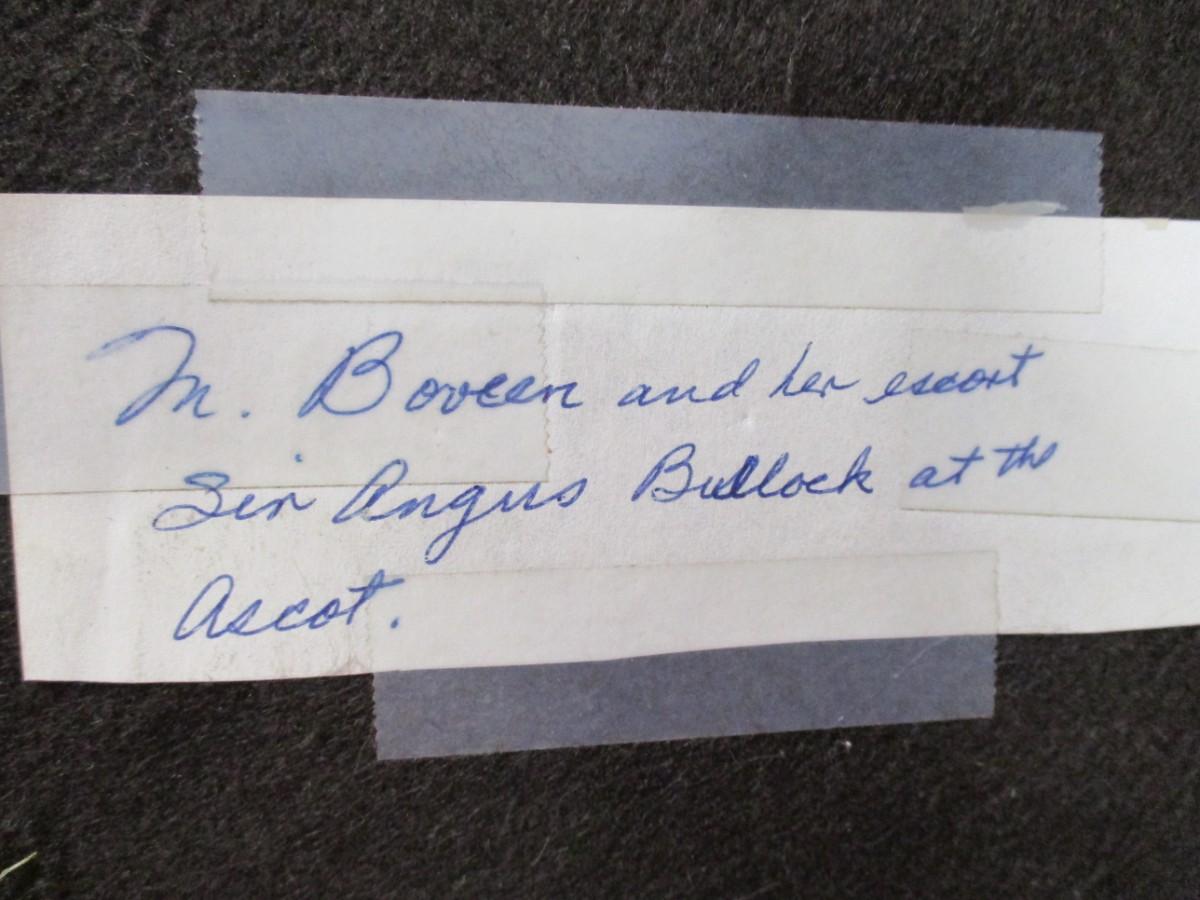 M. Boveen and her escort
Sir Angus Bullock at the
Ascot.